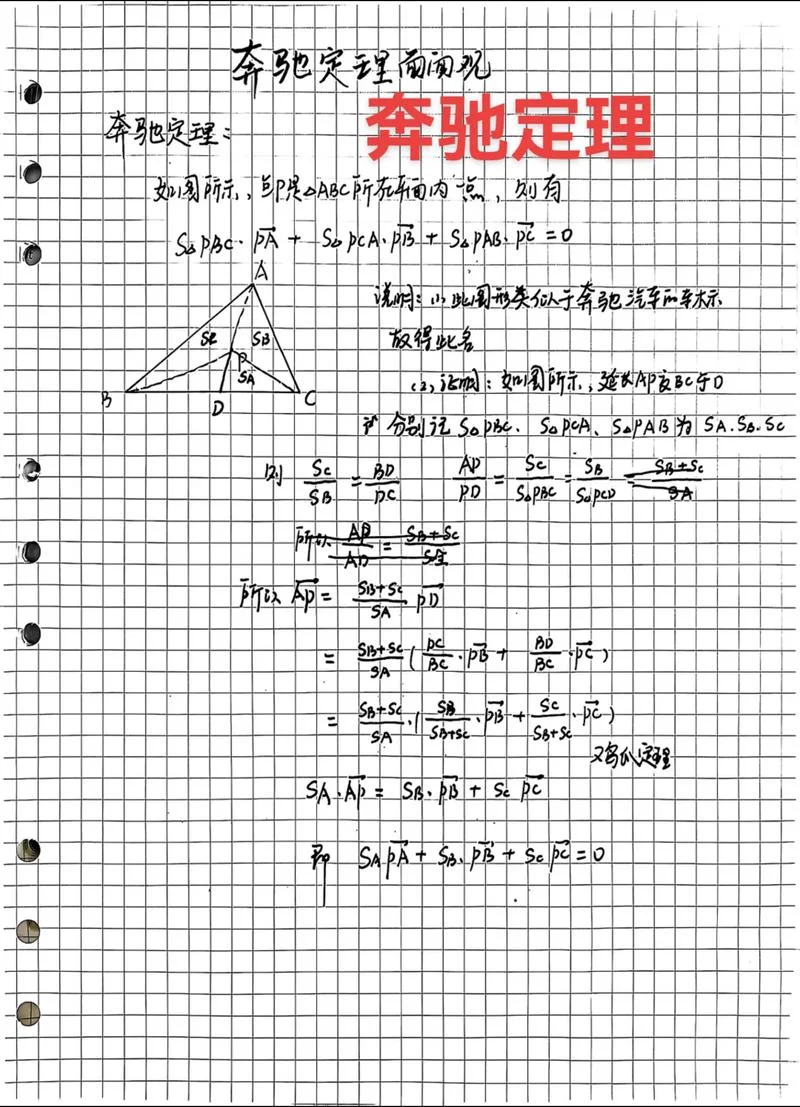 奔驰定理面面观
奔驰定理
奔驰定理:
如图所示,点P是△ABC所在平面内一点,则有
S△PBC·PA→ + S△PCA·PB→ + S△PAB·PC→ = 0
A
SC SB
P
SA
B D C
说明:(1)此图形类似于奔驰汽车的车标
故得此名
(2)证明:如图所示,延长AP交BC于D
分别记S△PBC、S△PCA、S△PAB为SA.SB.SC
则 SC/SB = BD/DC AP/PD = SC/S△PBC = SB/S△PCD = SB+SC/SA
所以 AP/AD = SB+SC/S
所以 AP→ = SB+SC/SA PD→
= SB+SC/SA (DC/BC·PB→ + BD/BC·PC→)
= SB+SC/SA·(SB/SB+SC·PB→ + SC/SB+SC·PC→)
鸡爪定理
SA·AP→ = SB·PB→ + SC PC→
即 SA PA→ + SB·PB→ + SC PC→ = 0